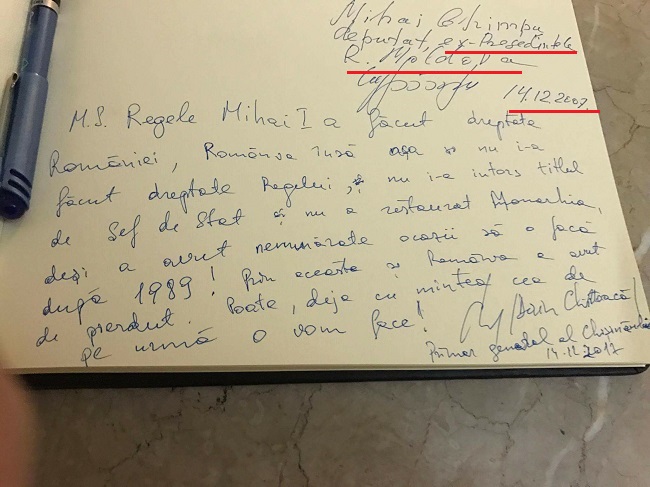 Mihai Ghimpu
deputat, ex-Președintele
R. Moldova
14.12.2017
M.S. Regele Mihai I a făcut dreptate
României, România însă așa și nu i-a
făcut dreptate Regelui, și nu i-a întors titlul
de Șef de Stat și nu a restaurat Monarhia,
deși a avut nenumărate ocazii să o facă
după 1989! Prin aceasta și România a avut
de pierdut. Poate, deja cu mintea cea de
pe urmă o vom face!
Dorin Chirtoacă
Primar general al Chișinăului
14.12.2017